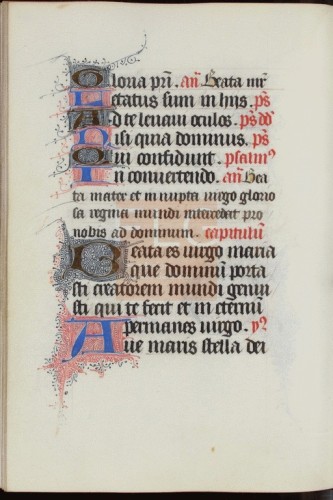 Gloria pri. an̄ Beata mr̄
Letatus sum in hijs. ps̄
Ad te levavi oculos. ps̄
Nisi quia dominus. ps̄
Qui confidunt. psalm⁹
In convertendo. an̄ Bea
ta mater et innupta virgo glorio
sa regina mundi intercedat pro
nobis ad dominum. capitulū
Beata es virgo maria
que dominū porta
sti creatorem mundi genui
sti qui te fecit et in eternū
permanes virgo. y⁹
Ave maris stella dei